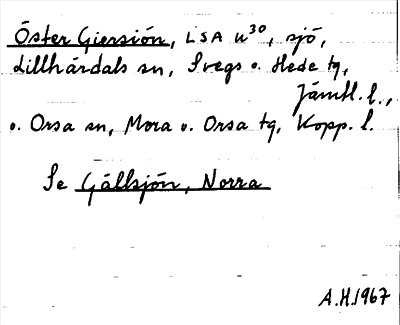 Öster Giersión, LSA u30, sjö,
Lillhärdals sn, Svegs o. Hede tg,
Jämtl. l.,
o. Orsa sn, Mora o. Orsa tg, Kopp. l.
Se Gällsjön, Norra
A.H.1967